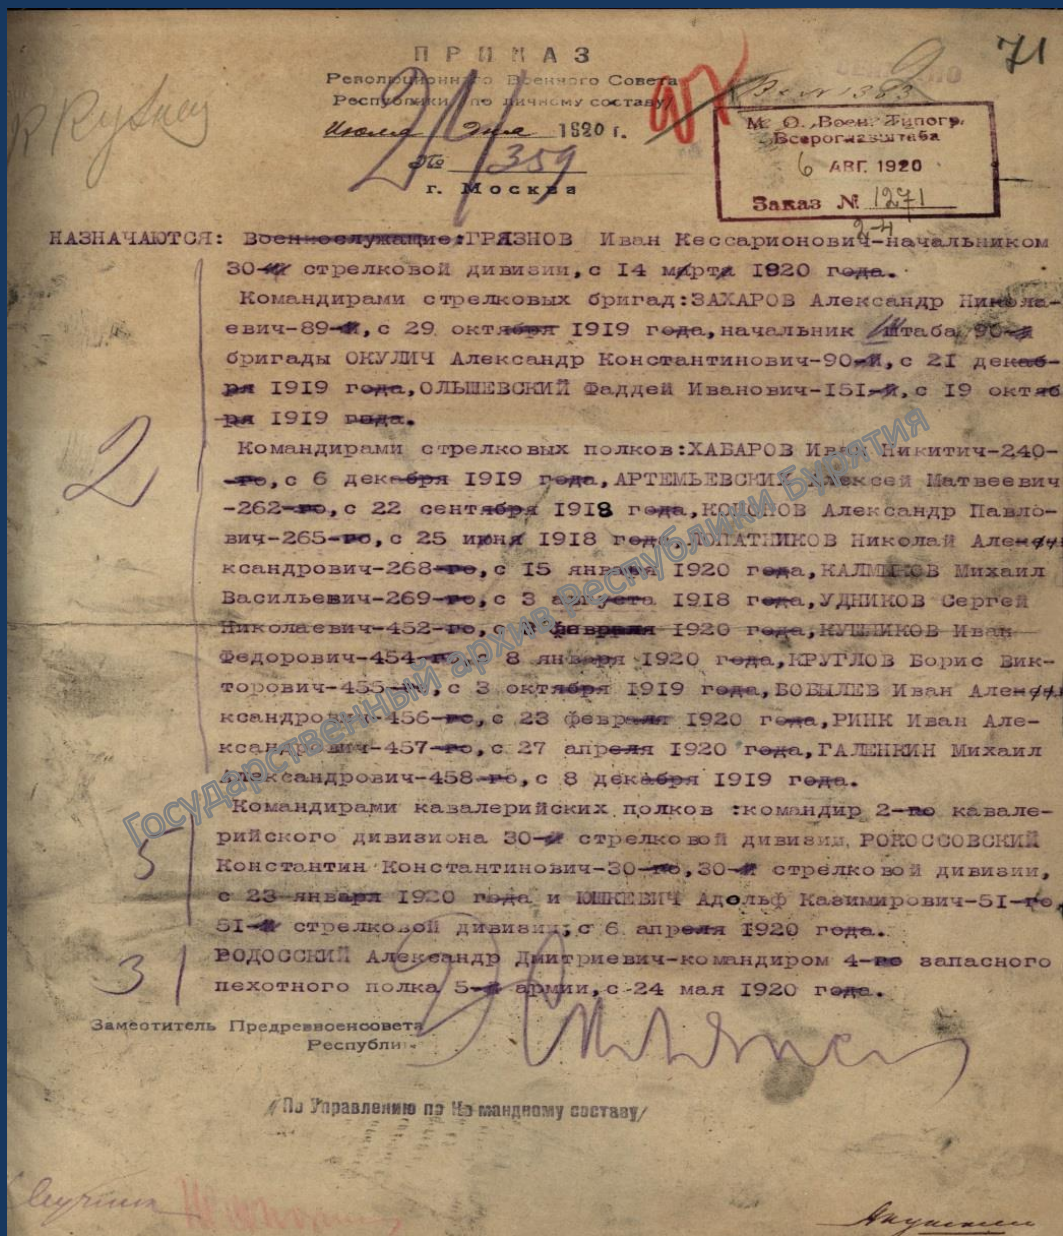 71
ПРИКАЗ
Революционного Военного Совета
Республики /по личному составу/
Июля 2 дня 1920 г.
№ 359
г. Москва
М. О. Воен. Типогр.
Всероглавштаба
6 АВГ. 1920
Заказ № 1271
24
НАЗНАЧАЮТСЯ: Военнослужащие:ГРЯЗНОВ Иван Кессарионович-начальником
30-й стрелковой дивизии, с 14 марта 1920 года.
Командирами стрелковых бригад:ЗАХАРОВ Александр Никола-
евич-89-й, с 29 октября 1919 года, начальник штаба 90-й
бригады ОКУЛИЧ Александр Константинович-90-й, с 21 декаб-
ря 1919 года, ОЛЬШЕВСКИЙ Фаддей Иванович-151-й, с 19 октяб
ря 1919 года.
Командирами стрелковых полков:ХАБАРОВ Иван Никитич-240-
го, с 6 декабря 1919 года, АРТЕМЬЕВСКИХ Алексей Матвеевич
-262-го, с 22 сентября 1918 года, КОНОНОВ Александр Павло-
вич-265-го, с 25 июня 1918 года, ЛОПАТНИКОВ Николай Але-
ксандрович-268-го, с 15 января 1920 года, КАЛМЫКОВ Михаил
Васильевич-269-го, с 3 августа 1918 года, УДНИКОВ Сергей
Николаевич-452-го, с февраля 1920 года, КУШНИКОВ Иван
Федорович-454-го, с 8 января 1920 года, КРУГЛОВ Борис Вик-
торович-455-го, с 3 октября 1919 года, БОБЫЛЕВ Иван Але-
ксандрович-456-го, с 23 февраля 1920 года, РИНК Иван Але-
ксандрович-457-го, с 27 апреля 1920 года, ГАЛЕНКИН Михаил
Александрович-458-го, с 8 декабря 1919 года.
Командирами кавалерийских полков :командир 2-го кавале-
рийского дивизиона 30-й стрелковой дивизии, РОКОССОВСКИЙ
Константин Константинович-30-го, 30-й стрелковой дивизии,
с 23 января 1920 года и ЮШКЕВИЧ Адольф Казимирович-51-го,
51-й стрелковой дивизии, с 6 апреля 1920 года.
РОДОССКИЙ Александр Дмитриевич-командиром 4-го запасного
пехотного полка 5-й армии, с 24 мая 1920 года.
2
5
3
Заместитель Предреввоенсовета
Республики
/По Управлению по Командному составу/
Государственный архив Республики Бурятия